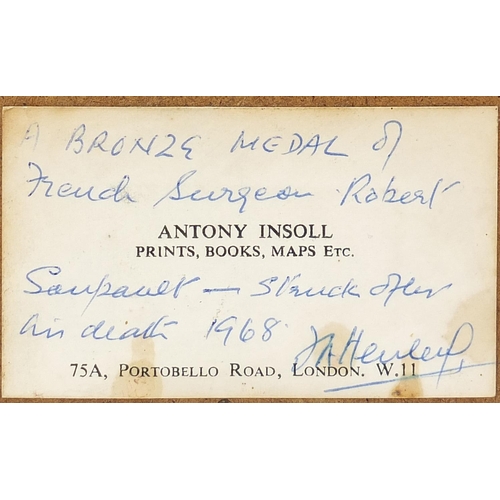 A BRONZE MEDAL of
French Surgeon Robert
ANTONY INSOLL
PRINTS, BOOKS, MAPS ETC.
Soupault — Struck after
his death 1968
75A, PORTOBELLO ROAD, LONDON. W.11